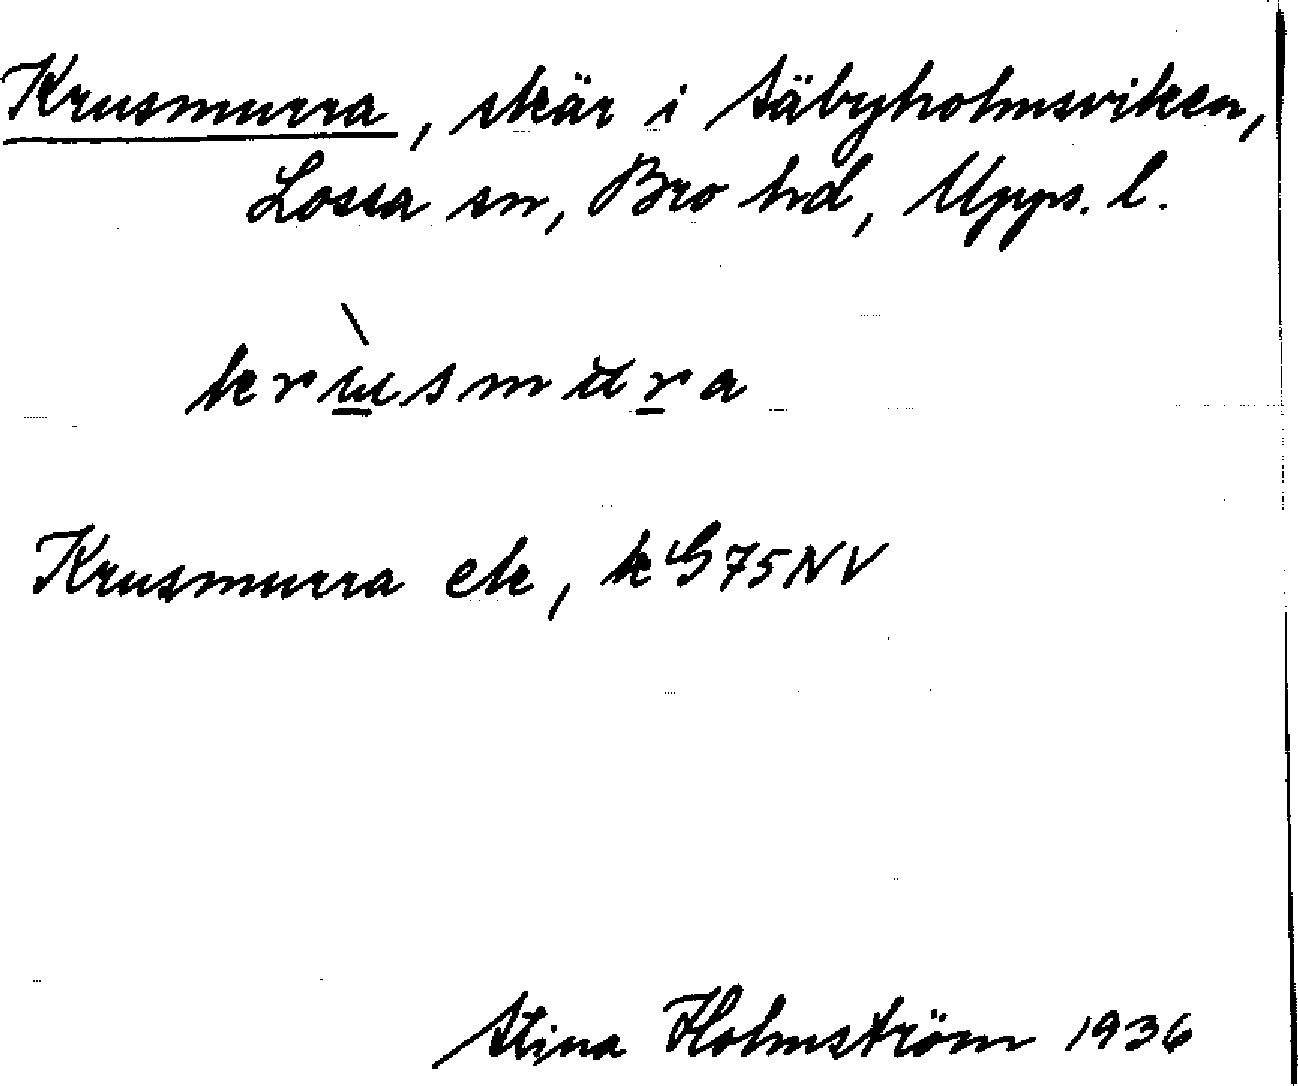 Krusmurra, skär i Säbyholmsviken,
Lossa sn, Bro hd, Upps. l.
Krusmurra ek, kG75NV
Stina Holmström 1936